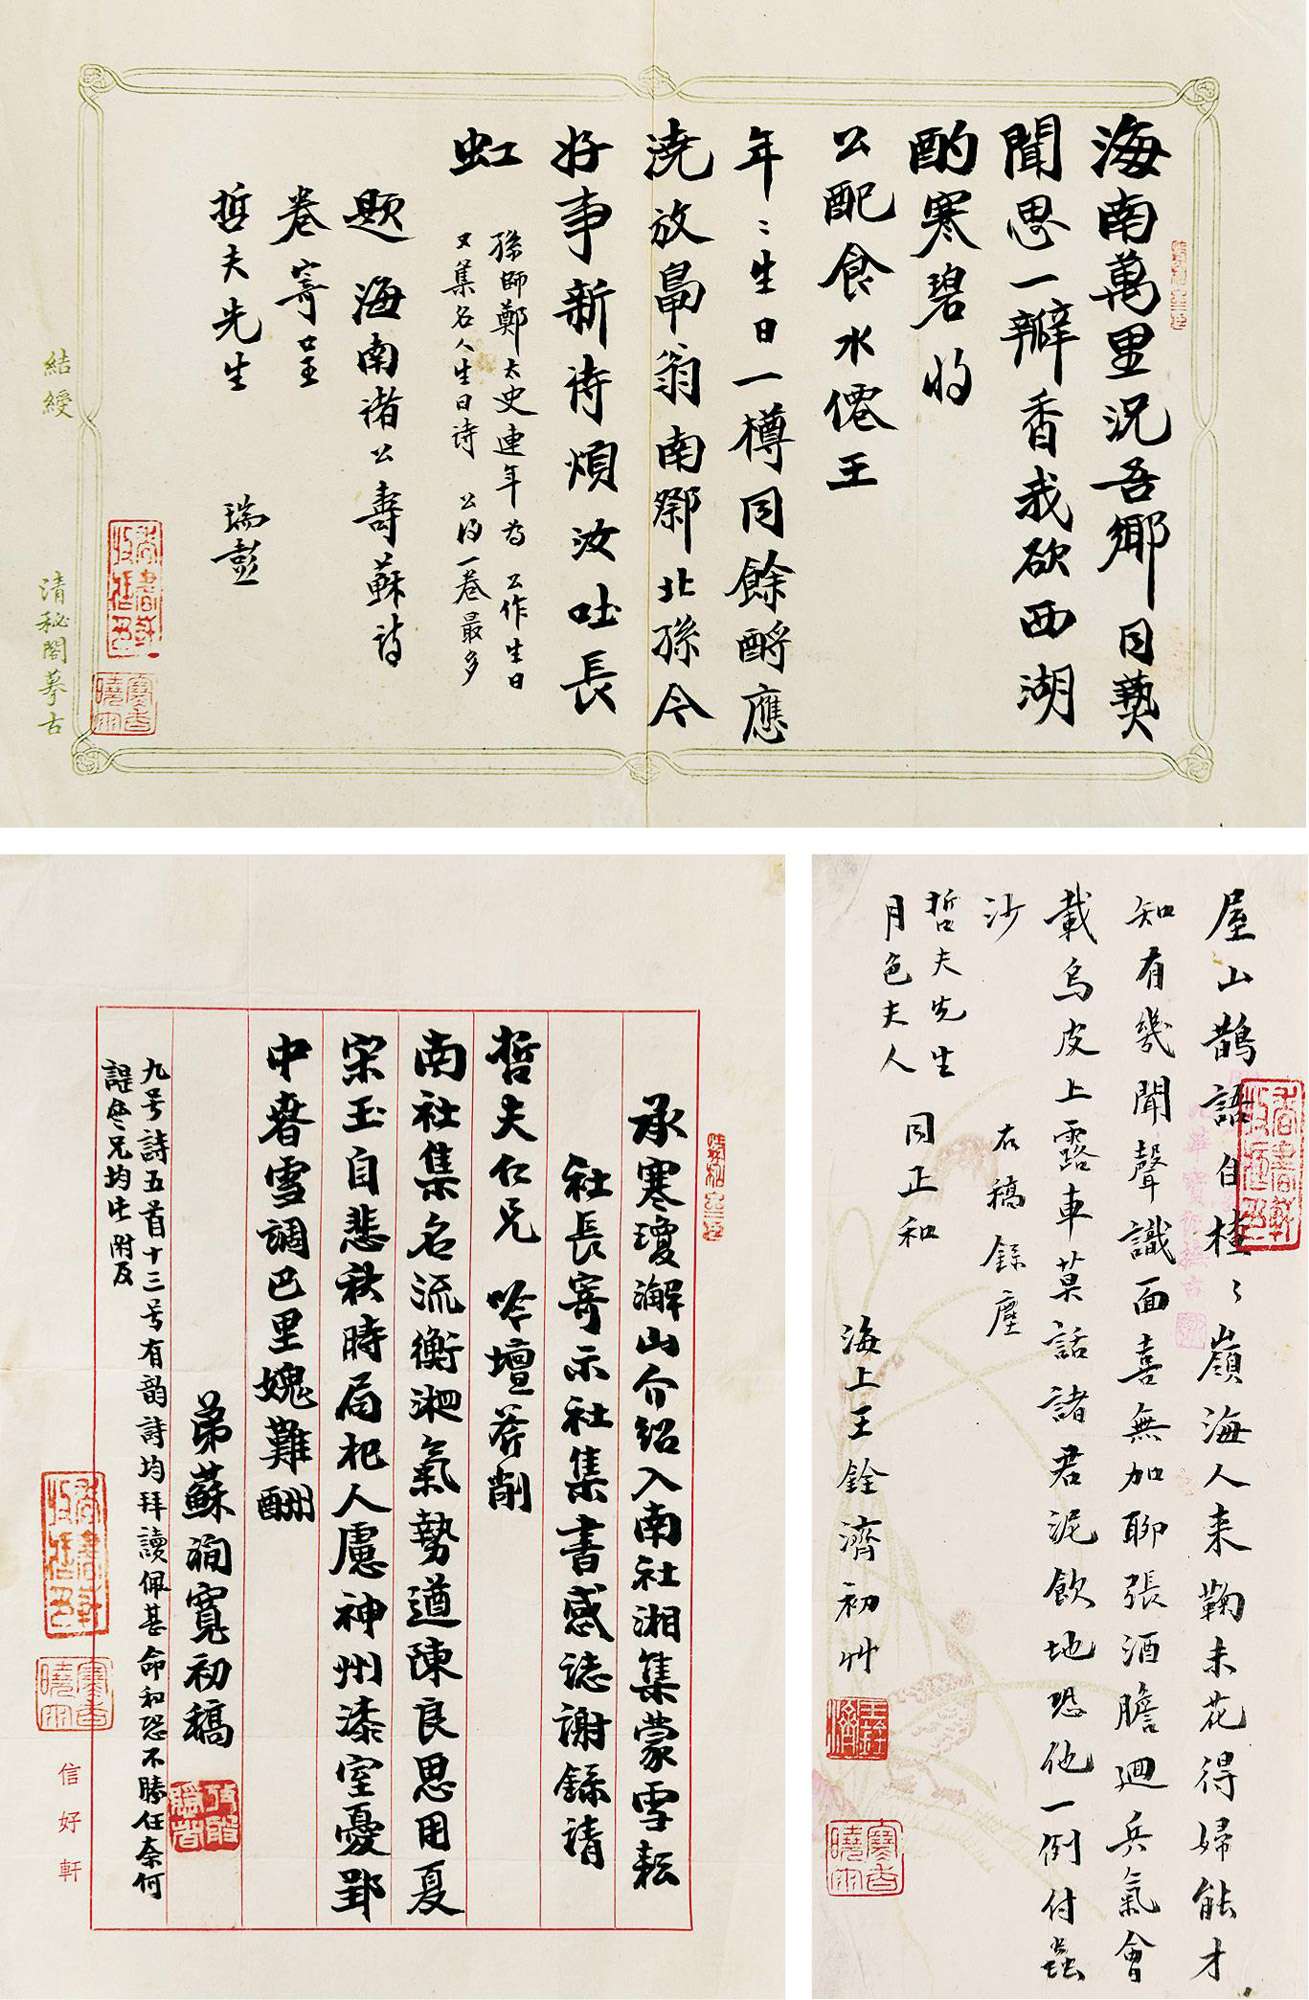 海南萬里況吾鄉同藝
聞思一瓣香我欲西湖
酌寒碧將
公配食水僊王
年〻生日一樽同餘酹應
澆放鼂翁南鄒北孫今
好事新詩煩汝吐長
虹
孫師鄭太史連年為公作生日
又集名人生日詩公得一卷最多
題海南諸公壽蘇詩
卷寄呈
哲夫先生
瑞彭
結綬
清秘閣摹古
承寒瓊澥山介紹入南社湘集蒙雪耘
社長寄示社集書感誌謝錄請
哲夫仁兄吟壇斧削
南社集名流衡湘氣勢遒陳良思用夏
宋玉自悲秋時局杞人慮神州漆室憂郢
中春雪調巴里媿難酬
弟蘇澗寬初稿
九号詩五首十三号有韵詩均拜讀佩甚命和恐不勝任奈何
兄均此附及
信好軒
屋山鵲語自楂〻嶺海人来鞠未花得婦能才
知有幾聞聲識面喜無加聊張酒膽廻兵氣會
載烏皮上露車莫話諸君泥飲地恐他一例付蟲
沙
右稿錄塵
哲夫先生
月色夫人
同正和
海上王銓濟初艸
王銓濟